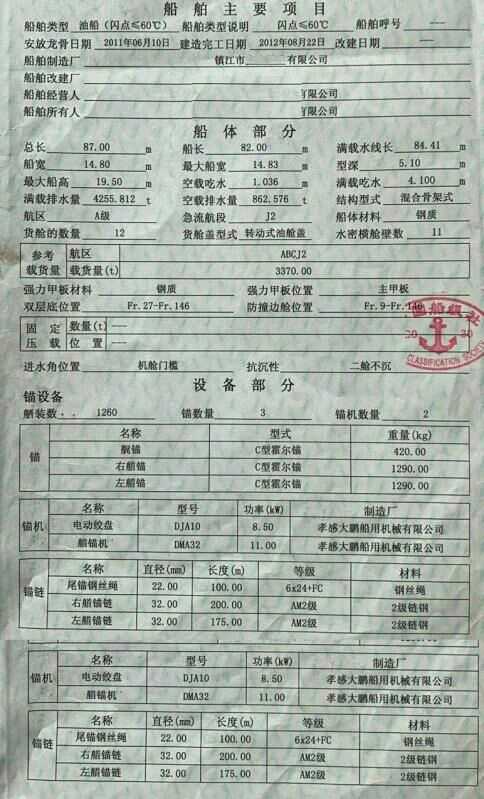 船 舶 主 要 项 目
船舶类型 油船（闪点≤60℃） 船舶类型说明 闪点≤60℃ 船舶呼号 ---
安放龙骨日期 2011年06月10日 建造完工日期 2012年08月22日 改建日期 ---
船舶制造厂 镇江市 有限公司
船舶改建厂 ---
船舶经营人 有限公司
船舶所有人 有限公司
船 体 部 分
总长 87.00 m 船长 82.00 m 满载水线长 84.41 m
船宽 14.80 m 最大船宽 14.83 m 型深 5.10 m
最大船高 19.50 m 空载吃水 1.036 m 满载吃水 4.100 m
满载排水量 4255.812 t 空载排水量 862.576 t 结构型式 混合骨架式
航区 A级 急流航段 J2 船体材料 钢质
货舱的数量 12 货舱盖型式 转动式油舱盖 水密横舱壁数 11
参考 航区 ABCJ2
载货量 载货量(t) 3370.00
强力甲板材料 钢质 强力甲板位置 主甲板
双层底位置 Fr.27-Fr.146 防撞边舱位置 Fr.9-Fr.146
固 定 数量(t) ---
压 载 位 置 ---
船级社
CLASSIFICATION SOCIETY
进水角位置 机舱门槛 抗沉性 二舱不沉
设 备 部 分
锚设备
舾装数 . . 1260 锚数量 3 锚机数量 2
锚 名称 型式 重量(kg)
艉锚 C型霍尔锚 420.00
右艏锚 C型霍尔锚 1290.00
左艏锚 C型霍尔锚 1290.00
锚机 名称 型号 功率(kW) 制造厂
电动绞盘 DJA10 8.50 孝感大鹏船用机械有限公司
艏锚机 DMA32 11.00 孝感大鹏船用机械有限公司
锚链 名称 直径(mm) 长度(m) 等级 材料
尾锚钢丝绳 22.00 100.00 6x24+FC 钢丝绳
右艏锚链 32.00 200.00 AM2级 2级链钢
左艏锚链 32.00 175.00 AM2级 2级链钢
锚机 名称 型号 功率(kW) 制造厂
电动绞盘 DJA10 8.50 孝感大鹏船用机械有限公司
艏锚机 DMA32 11.00 孝感大鹏船用机械有限公司
锚链 名称 直径(mm) 长度(m) 等级 材料
尾锚钢丝绳 22.00 100.00 6x24+FC 钢丝绳
右艏锚链 32.00 200.00 AM2级 2级链钢
左艏锚链 32.00 175.00 AM2级 2级链钢